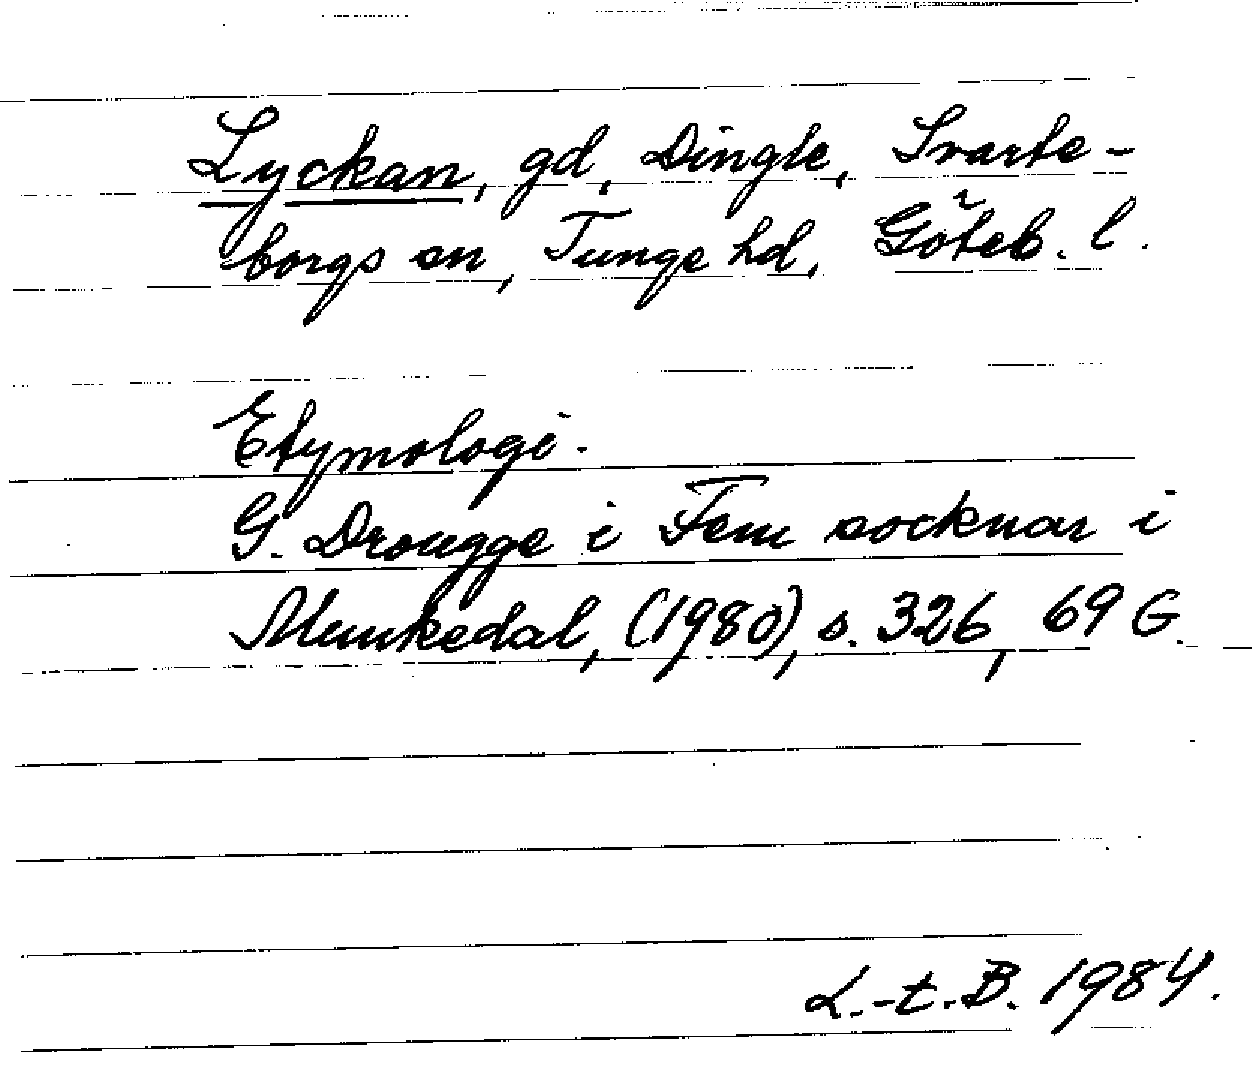 Lyckan, gd, Dingle, Svarte-
borgs sn, Tunge hd, Göteb. l.
Etymologi.
G. Drougge i Fem socknar i
Munkedal, (1980), s. 326, 69 G.
L.-t. B. 1984.